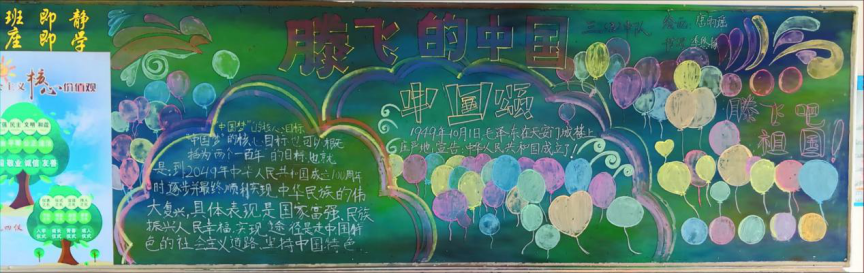 班即即静
座即即学
核心·价值观
腾飞的中国
中国颂
1949年10月1日,毛泽东在天安门城楼上
庄严地宣告:中华人民共和国成立了!
腾飞吧
祖国!
"中国梦"的核心目标
"中国梦"的核心目标也可以概
括为两个一百年的目标,也就
是:到2049年中华人民共和国成立100周年
时,逐步并最终顺利实现中华民族的伟
大复兴,具体表现是国家富强、民族
振兴、人民幸福,实现途径是走中国特
色的社会主义道路、坚持中国特色